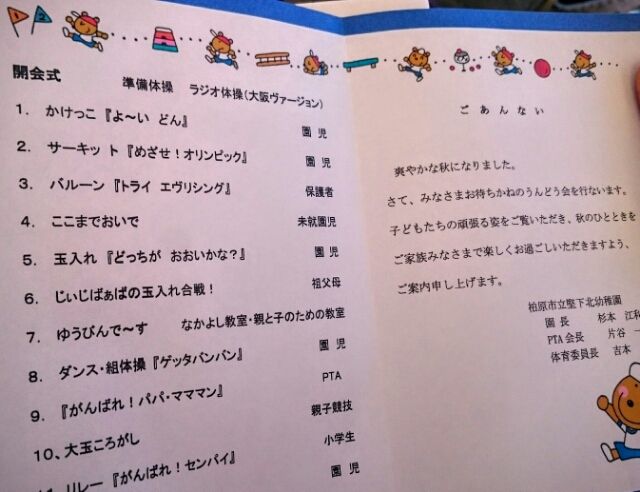 1 2
開会式
準備体操 ラジオ体操(大阪ヴァージョン)
1. かけっこ『よ〜い どん』 園児
2. サーキット『めざせ!オリンピック』 園児
3. バルーン『トライ エヴリシング』 保護者
4. ここまでおいで 未就園児
5. 玉入れ『どっちが おおいかな?』 園児
6. じぃじばぁばの玉入れ合戦! 祖父母
7. ゆうびんで〜す なかよし教室・親と子のための教室
8. ダンス・組体操『ゲッタバンバン』 園児
9. 『がんばれ!パパ・マママン』 PTA
10、大玉ころがし 親子競技
小学生
リレー『がんばれ!センパイ』 園児
ごあんない
爽やかな秋になりました。
さて、みなさまお待ちかねのうんどう会を行ないます。
子どもたちの頑張る姿をご覧いただき、秋のひとときを
ご家族みなさまで楽しくお過ごしいただきますよう、
ご案内申し上げます。
柏原市立堅下北幼稚園
園長 杉本 江和
PTA会長 片谷
体育委員長 吉本